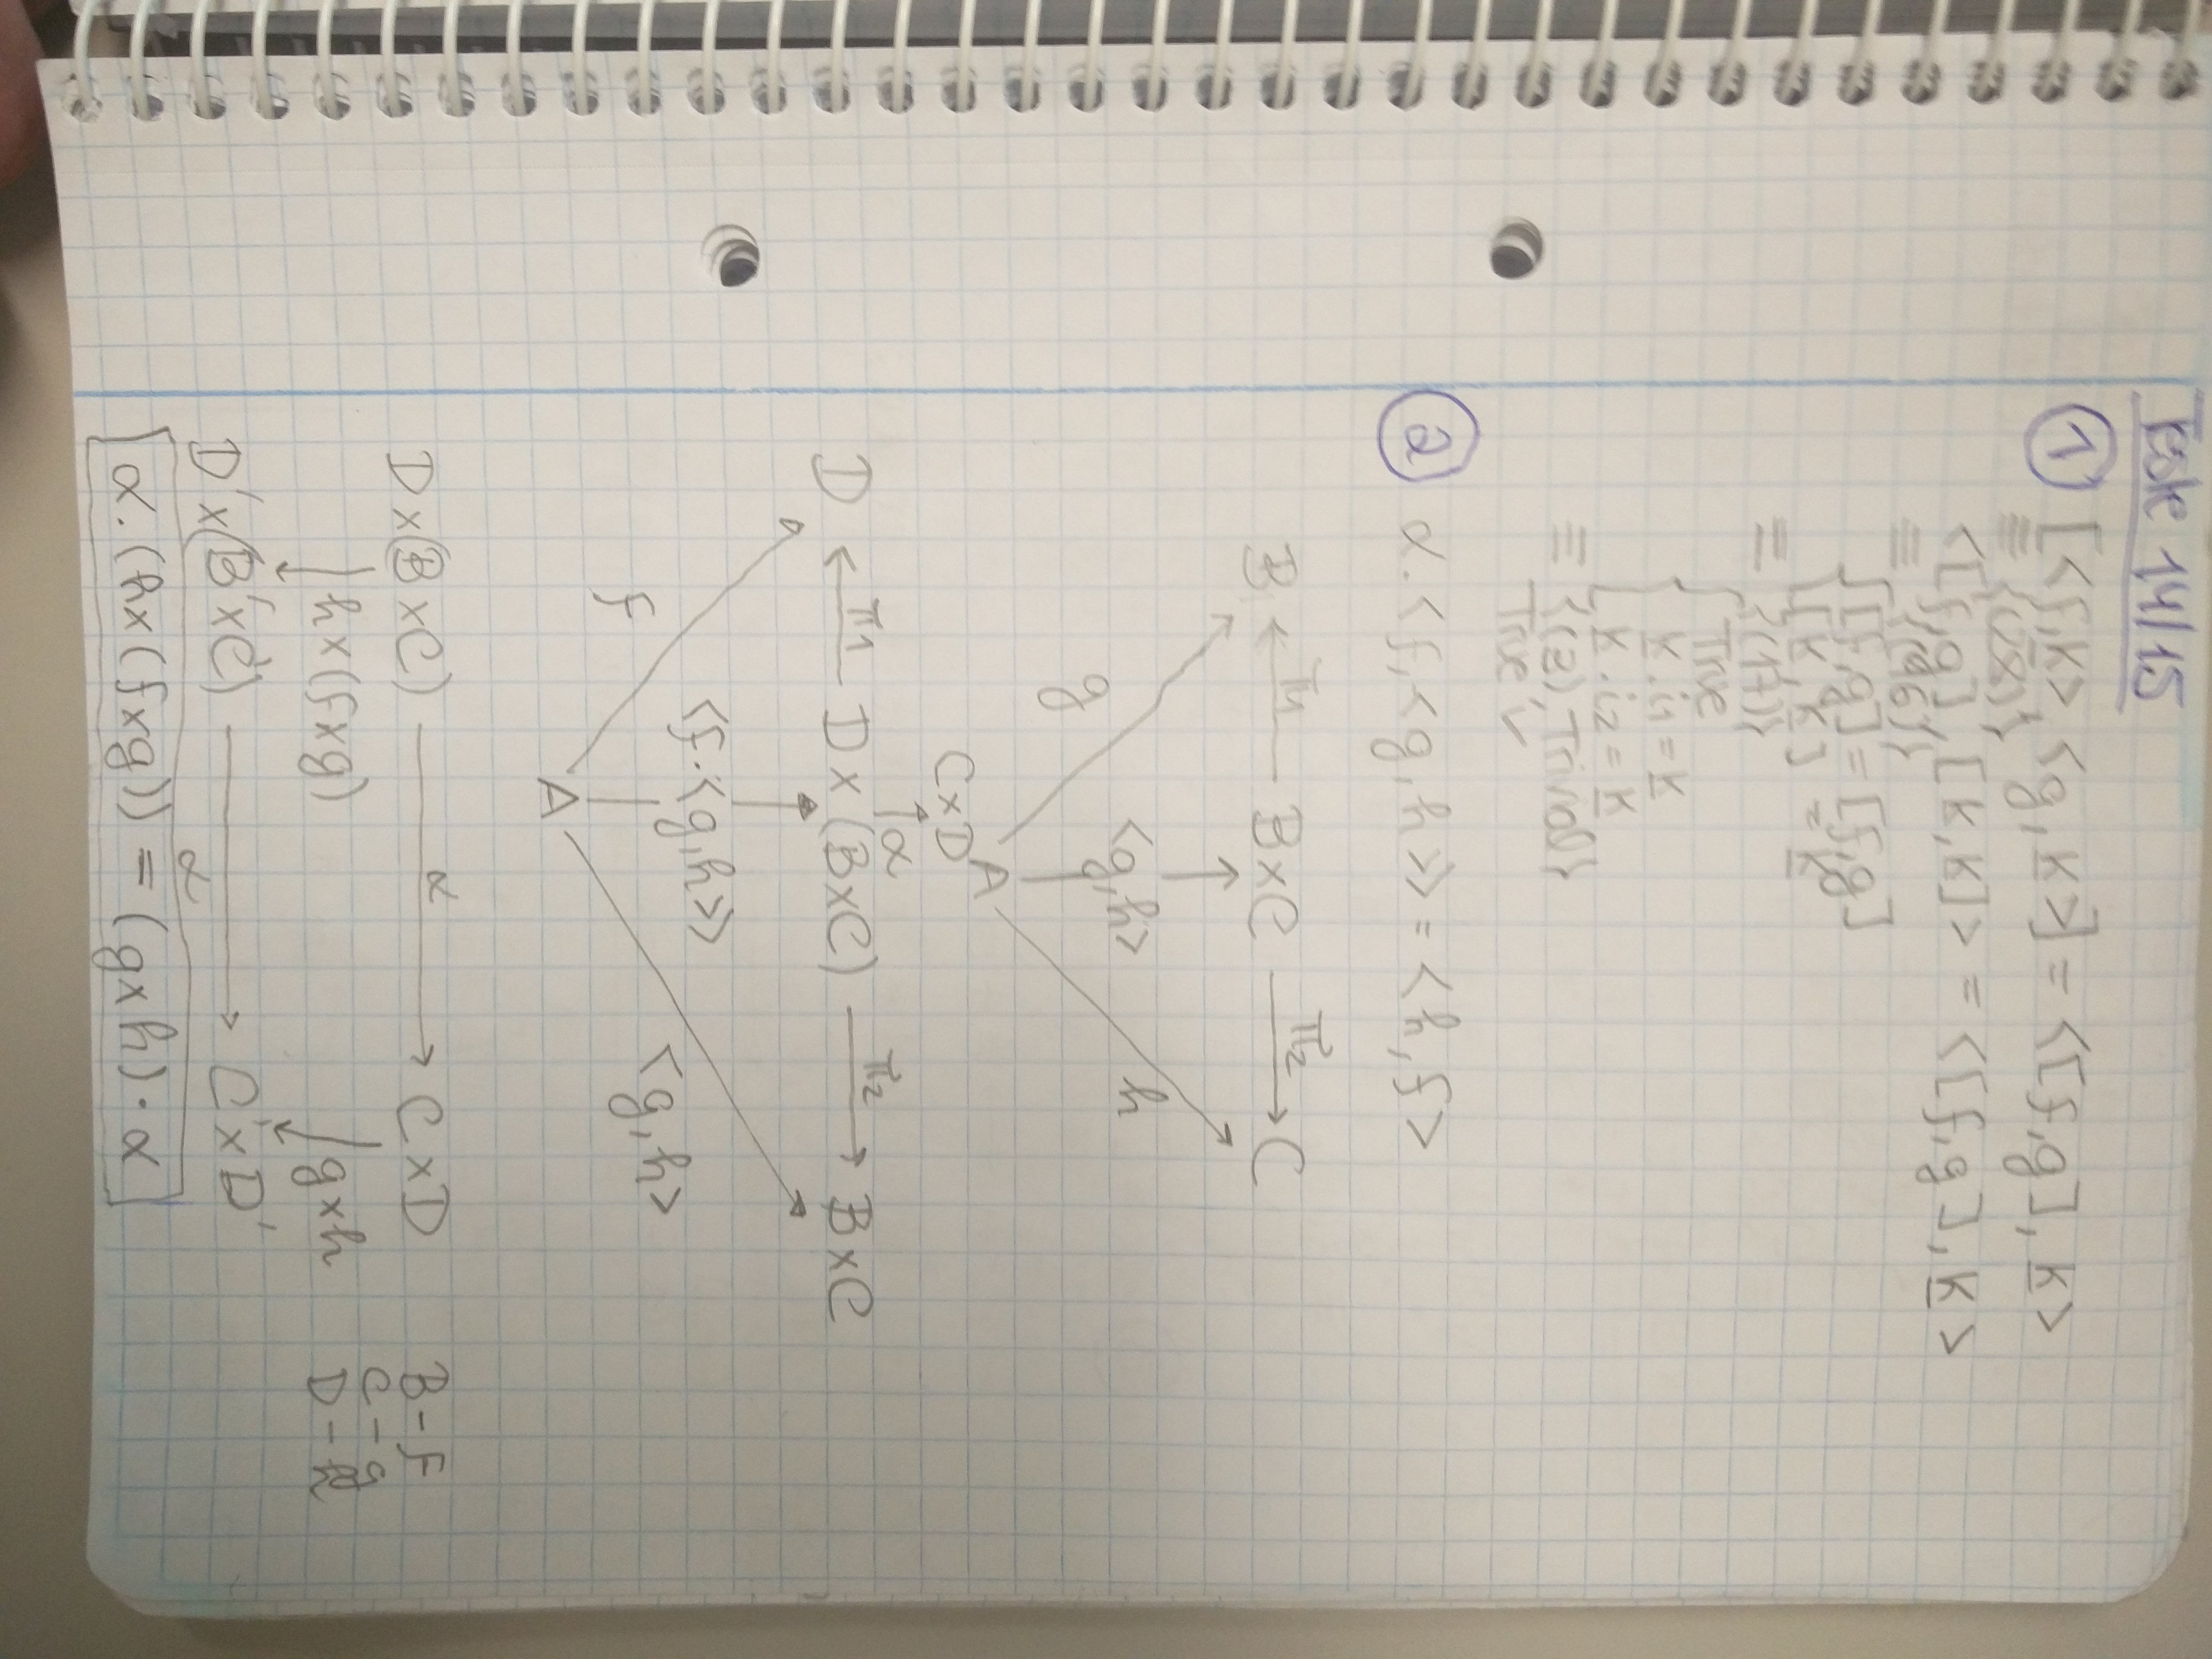 Teste 14/15
① [<f,k̲>,<g,k̲>] = <[f,g],k̲>
≡ {(28)}
<[f,g],[k,k]> = <[f,g],k̲>
≡ {(16)}
{[f,g] = [f,g]
{[k̲,k̲] = k̲
≡ {(17)}
{ True
{ k̲.i1 = k̲
{ k̲.i2 = k̲
≡ {(3), Trival}
True ✓
② α.<f,<g,h>> = <h,f>
B ←π1— B×C —π2→ C
g <g,h> h
A
C×D
↑α
D ←π1— D×(B×C) —π2→ B×C
f <f.<g,h>> <g,h>
A
D×(B×C) —α→ C×D B-f
C-g
↓h×(f×g) ↓g×h D-h
D'×(B'×C') —α→ C'×D'
α.(h×(f×g)) = (g×h).α